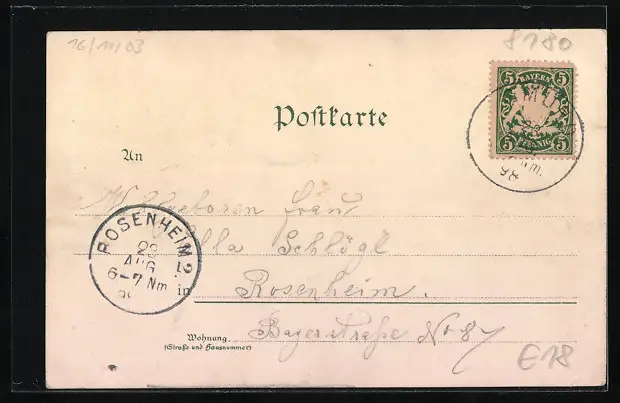 16/11/03
8180
5 BAYERN 5
5 PFENNIG 5
98
Postkarte
An
Wohlgeboren Frau
Schlögl
ROSENHEIM 2.
AUG
6-7 Nm
in Rosenheim.
Wohnung
(Straße und Hausnummer)
Bayerstraße No 87
E18